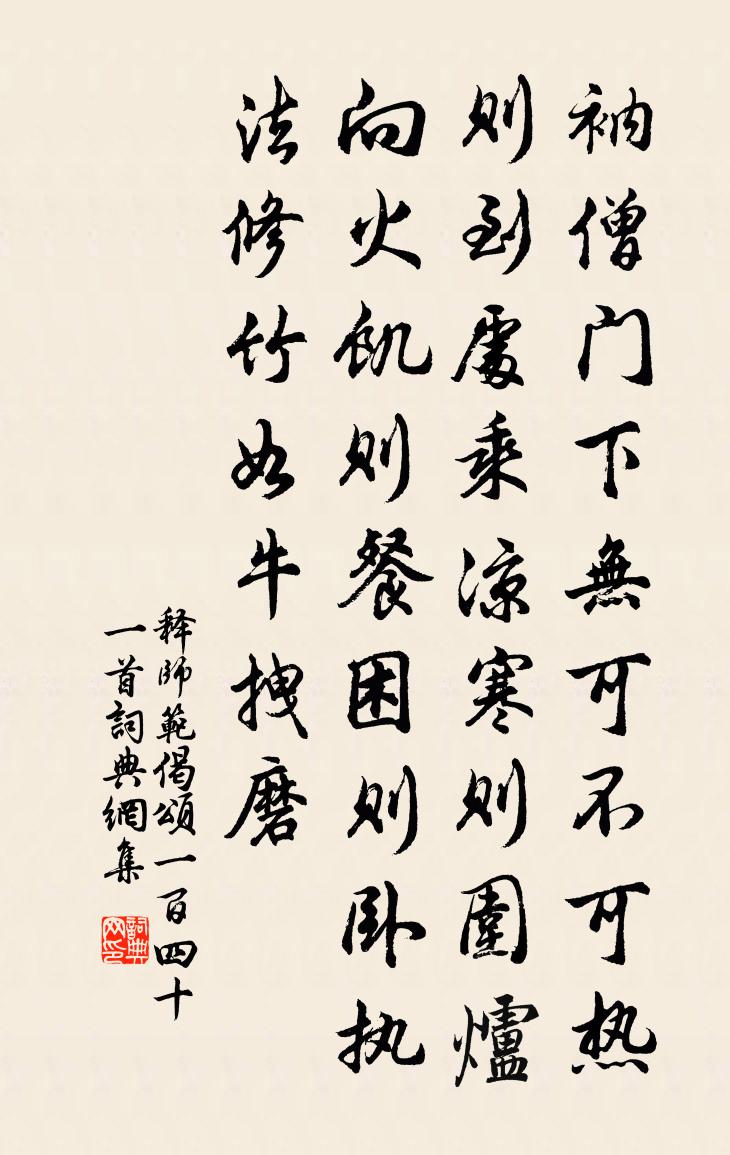 衲僧門下無可不可热
则到處乘涼寒则圍爐
向火飢则餐困则卧执
法修竹如牛拽磨
释師範偈頌一百四十
一首詞典網集
詞典网印